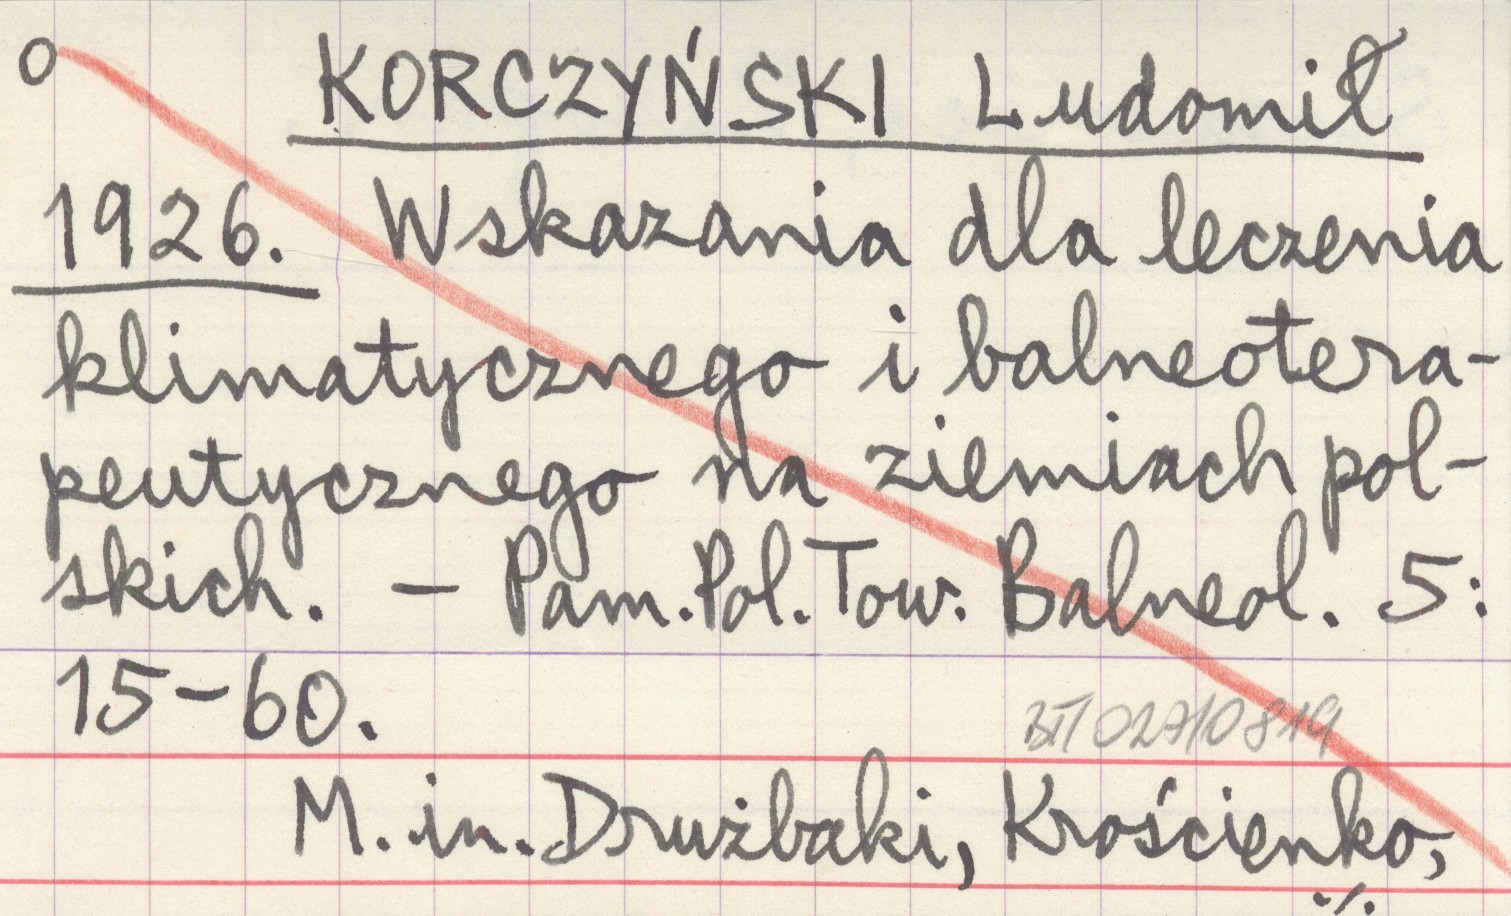 O KORCZYŃSKI Ludomił
1926. Wskazania dla leczenia
klimatycznego i balneotera-
peutycznego na ziemiach pol-
skich. – Pam. Pol. Tow. Balneol. 5:
15–60.
M. in. Drużbaki, Krościenko,
./.